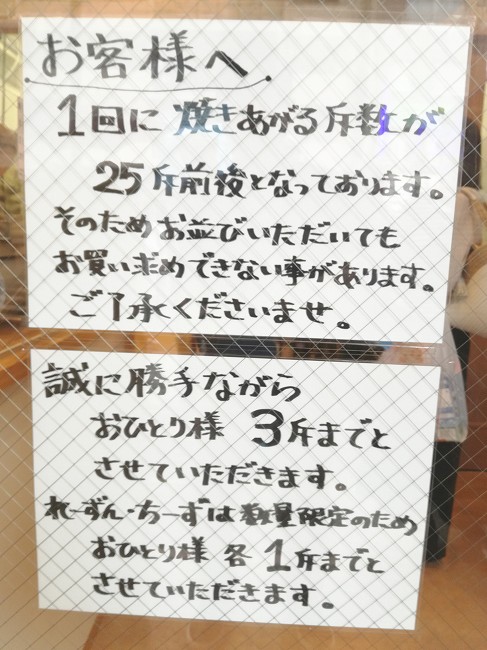 お客様へ
1回に焼きあがる斤数が
25斤前後となっております。
そのためお並びいただいても
お買い求めできない事があります。
ご了承くださいませ。
誠に勝手ながら
おひとり様 3斤までと
させていただきます。
れーずん・ちーずは数量限定のため
おひとり様 各1斤までと
させていただきます。